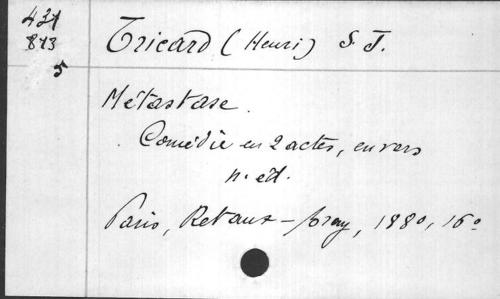 431
813
5
Tricard (Henri) S. J.
Métastase.
Comédie en 2 actes, en vers
n. éd.
Paris, Retaux-Bray, 1880, 16°